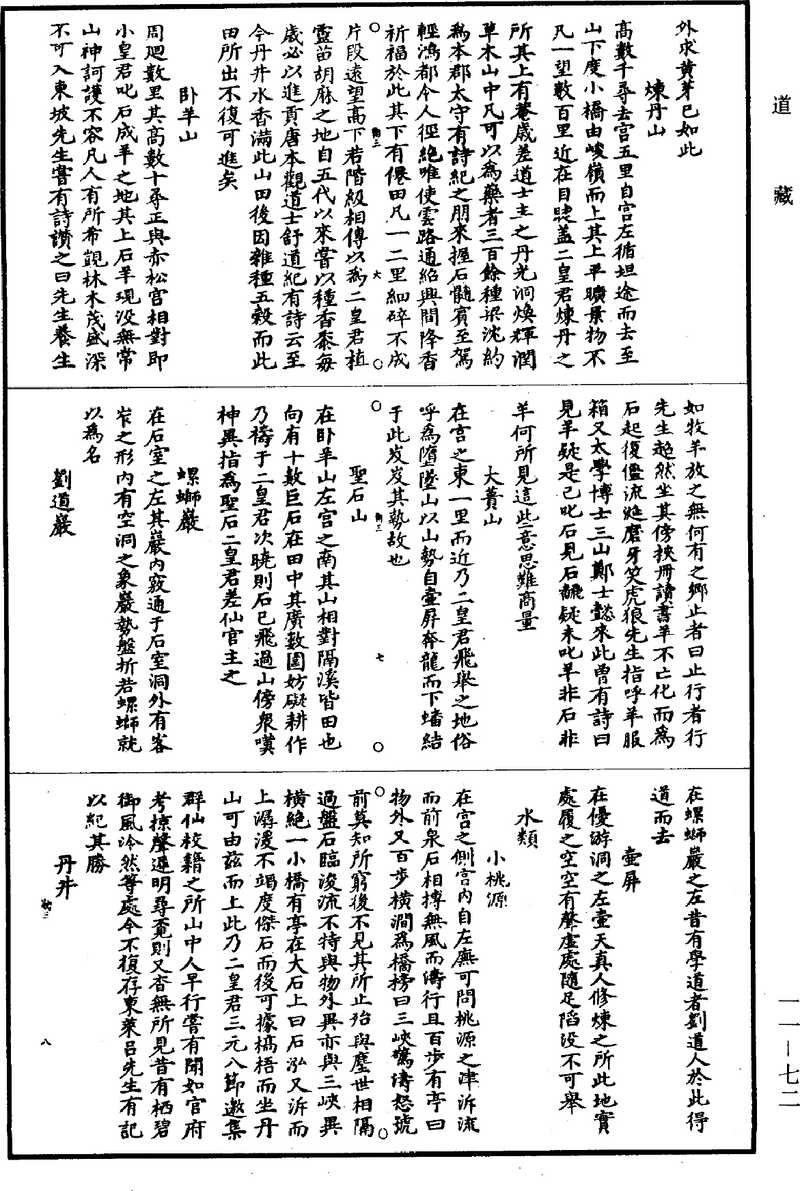 道藏
外求黄芽已如此
煉丹山
高數千尋去宮五里自宮左循坦途而去至
山下度小橋由峻嶺而上其上平曠景物不
凡一望數百里近在目睫蓋二皇君煉丹之
所其上有菴歲差道士主之丹光洞煥輝潤
草木山中凡可以為藥者三百餘種梁沈約
為本郡太守有詩紀之朋來握石髓賓至駕
輕鴻都令人徑絶唯使雲路通紹興間降香
祈福於此其下有僊田凡一二里細碎不成
片段遠望高下若階級相傳以為二皇君植
靈苗胡麻之地自五代以來嘗以種香黍每
歲必以進貢唐本觀道士舒道紀有詩云至
今丹井水香滿此山田後因雜種五穀而此
田所出不復可進矣
卧羊山
周廻數里其高數十尋正與赤松宮相對即
小皇君叱石成羊之地其上石羊現没無常
山神訶護不容凡人有所希覬林木茂盛深
不可入東坡先生嘗有詩讚之曰先生養生
如牧羊放之無何有之鄉止者曰止行者行
先生超然坐其傍挾冊讀書羊不亡化而為
石起復僵流涎磨牙笑虎狼先生指呼羊服
箱又太學博士三山鄭士懿來此曽有詩曰
見羊疑是已叱石見石䚫疑未叱羊非石非
羊何所見這些意思難商量
大蕢山
在宮之東一里而近乃二皇君飛舉之地俗
呼為墮墜山以山勢自壷屏奔龍而下蟠結
于此岌岌其勢故也
聖石山
在卧羊山左宮之南其山相對隔溪皆田也
向有十數巨石在田中其廣數圍妨礙耕作
乃禱于二皇君次曉則石已飛過山傍衆嘆
神異指為聖石二皇君差仙官主之
螺螄巖
在石室之左其巖内竅通于石室洞外有峇
岝之形内有空洞之象巖勢盤折若螺螄就
以為名
劉道巖
在螺螄巖之左昔有學道者劉道人於此得
道而去
壷屏
在優游洞之左壷天真人修煉之所此地實
處履之空空有聲虚處隨足陷没不可舉
水類
小桃源
在宮之側宮内自左廡可問桃源之津泝流
而前泉石相搏無風而濤行且百步有亭曰
物外又百步横澗為橋榜曰三峽驚濤怒號
前莫知所窮後不見其所止殆與塵世相隔
過盤石臨浚流不特與物外異亦與三峽異
横絶一小橋有亭在大石上曰石泓又泝而
上潺湲不竭度傑石而後可據槁梧而坐丹
山可由兹而上此乃二皇君三元八節邀集
群仙校籍之所山中人早行嘗有聞如官府
考掠聲遲明尋覔則又杳無所見昔有栖碧
御風泠然等處今不復存東萊吕先生有記
以紀其勝
丹井
一一—七二